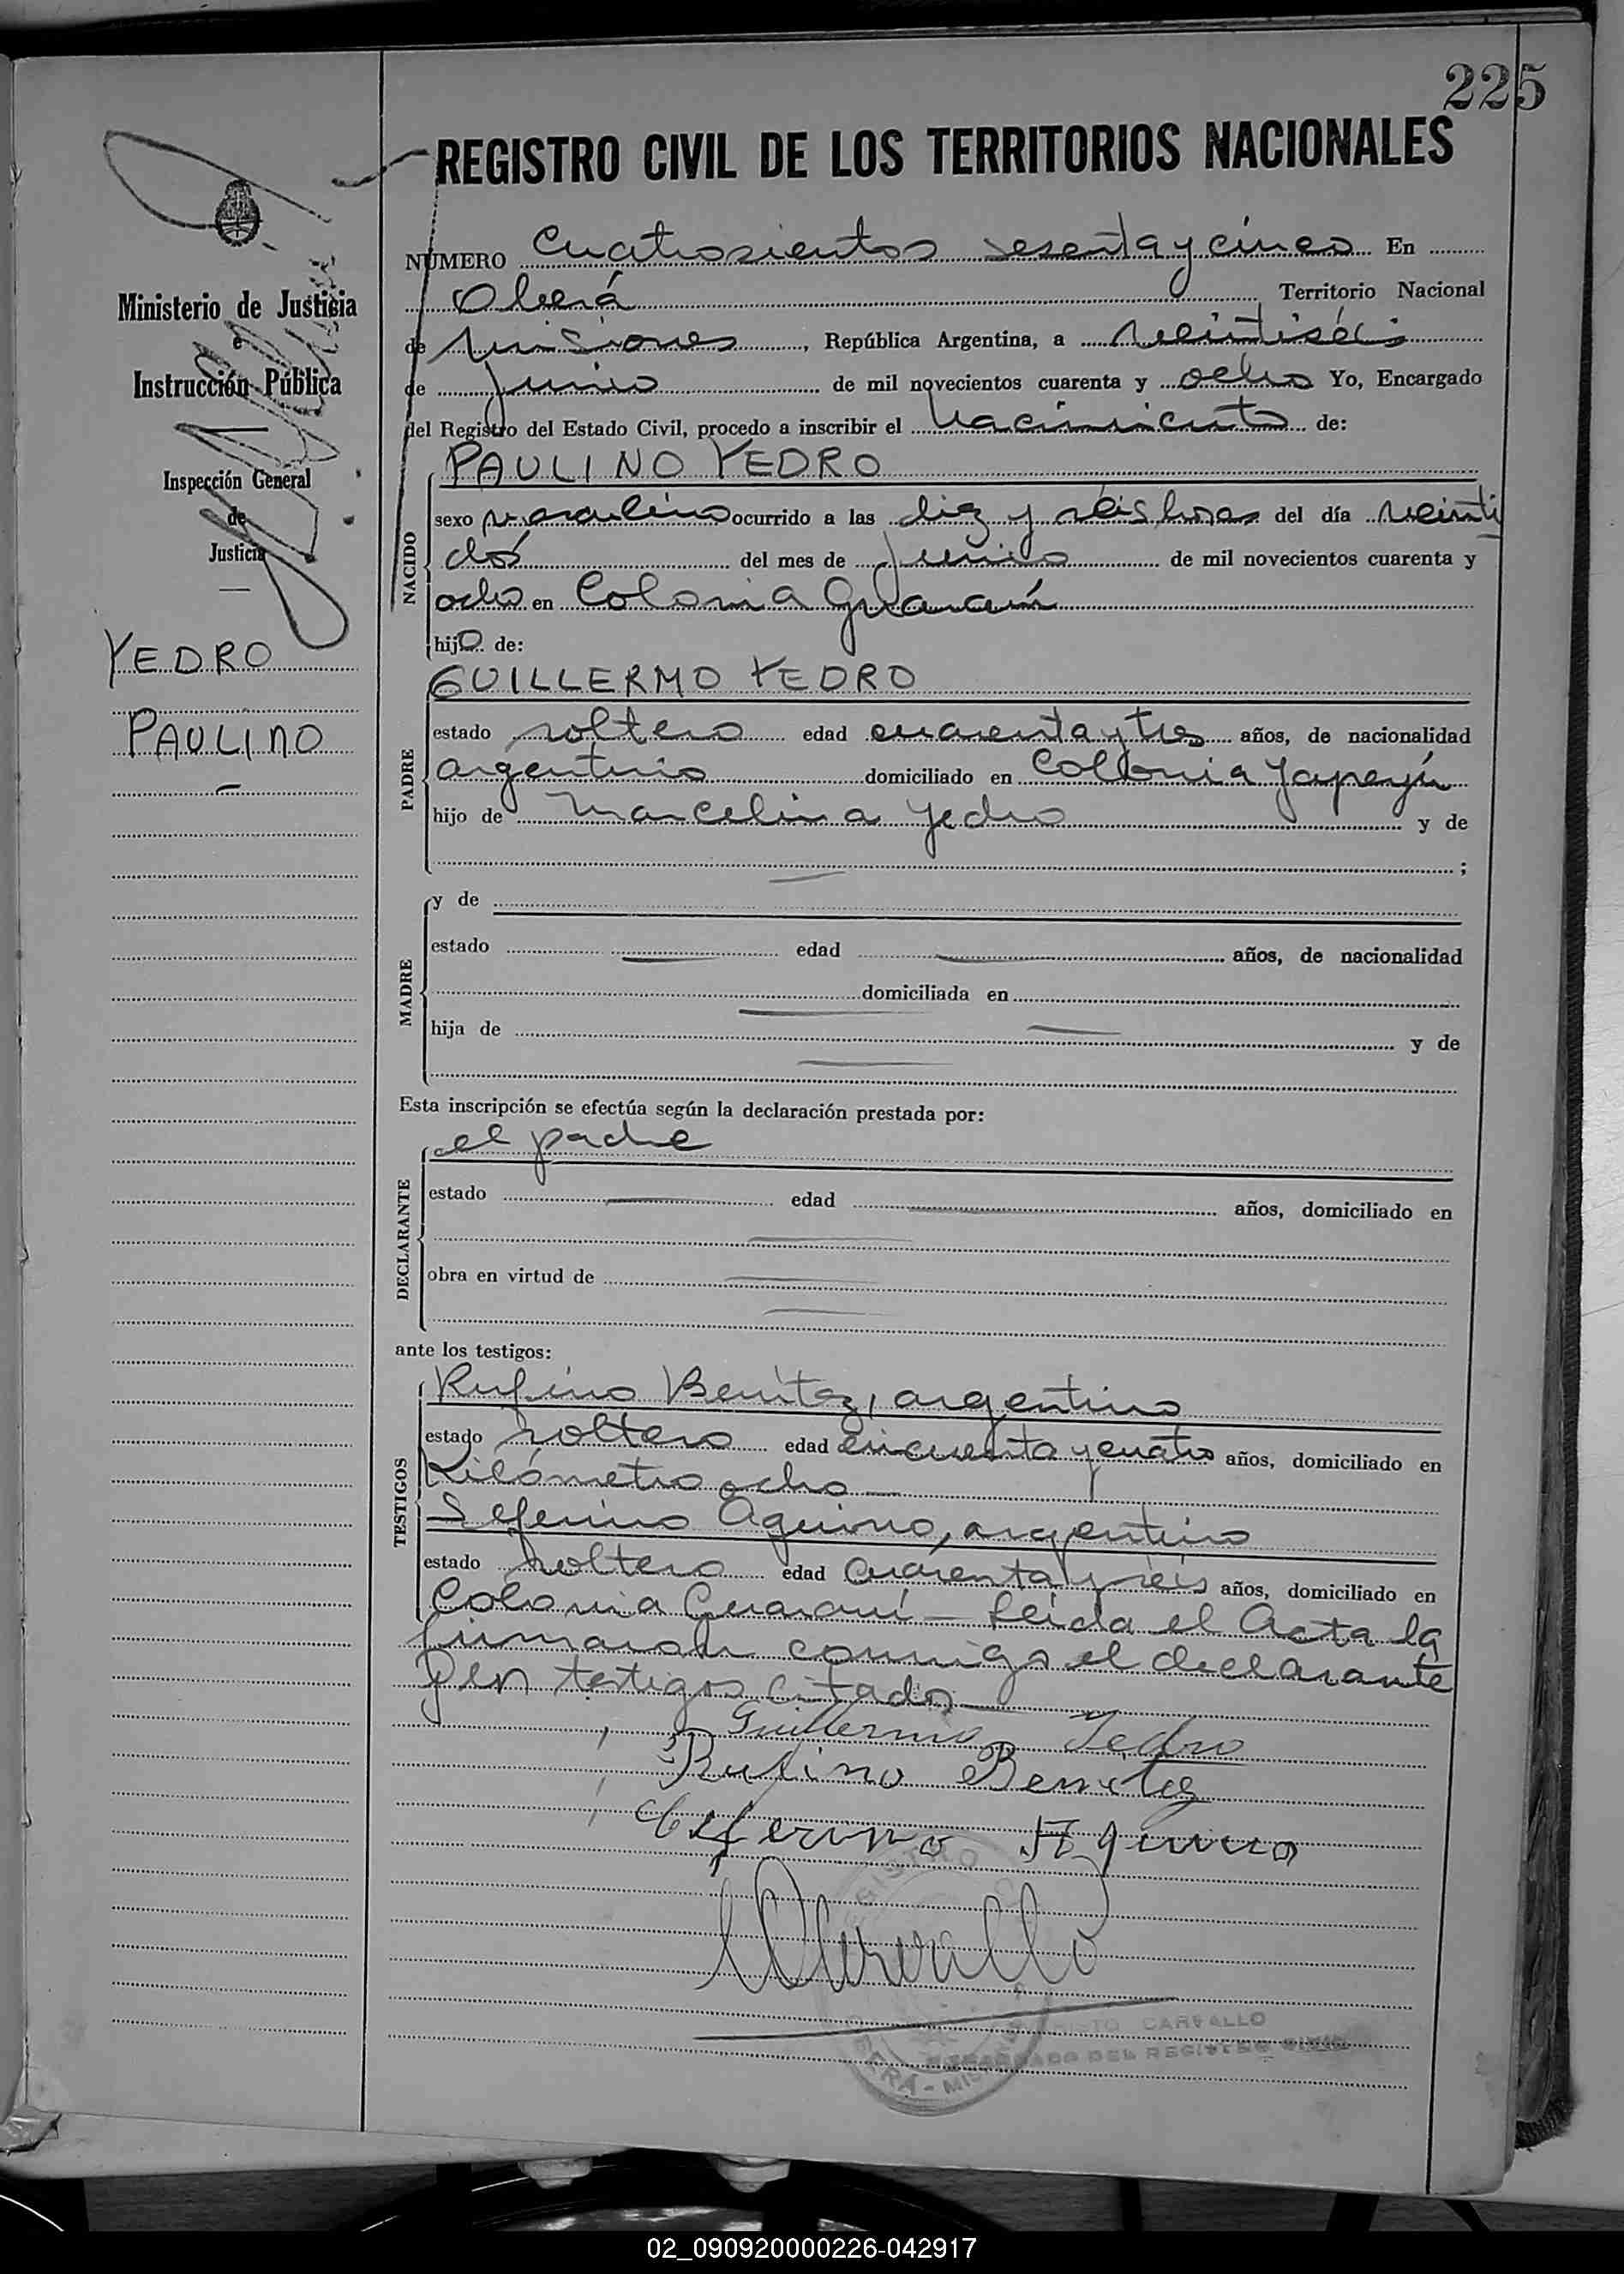 225
REGISTRO CIVIL DE LOS TERRITORIOS NACIONALES
NÚMERO Cuatrosientos sesenta y cinco En
Oberá Territorio Nacional
de Misiones, República Argentina, a veintiséis
de Junio de mil novecientos cuarenta y ocho Yo, Encargado
del Registro del Estado Civil, procedo a inscribir el Nacimiento de:
Ministerio de Justicia
e
Instrucción Pública
Inspección General
de
Justicia
YEDRO
PAULINO
NACIDO
PAULINO YEDRO
sexo masculino ocurrido a las diez y séis horas del día veinti
dós del mes de Junio de mil novecientos cuarenta y
ocho en Colonia Guaraní
hijo de:
PADRE
GUILLERMO YEDRO
estado soltero edad cuarenta y tres años, de nacionalidad
argentino domiciliado en Colonia Yapeyú
hijo de Marcelina Yedro y de
;
MADRE
y de
estado edad años, de nacionalidad
domiciliada en
hija de y de
Esta inscripción se efectúa según la declaración prestada por:
DECLARANTE
el padre
estado edad años, domiciliado en
obra en virtud de
ante los testigos:
TESTIGOS
Rufino Benítez, argentino
estado soltero edad cincuenta y cuatro años, domiciliado en
Kilómetro ocho —
Seferino Aquino, argentino
estado soltero edad cuarenta y seis años, domiciliado en
Colonia Guaraní — Leida el Acta la
firmaron conmigo el declarante
y los testigos citados
Guillermo Yedro
Rufino Benitez
Ceferino Aquino
Carvallo
REGISTRO
OBERÁ - MISIONES
CARVALLO
ENCARGADO DEL REGISTRO CIVIL
02_090920000226-042917